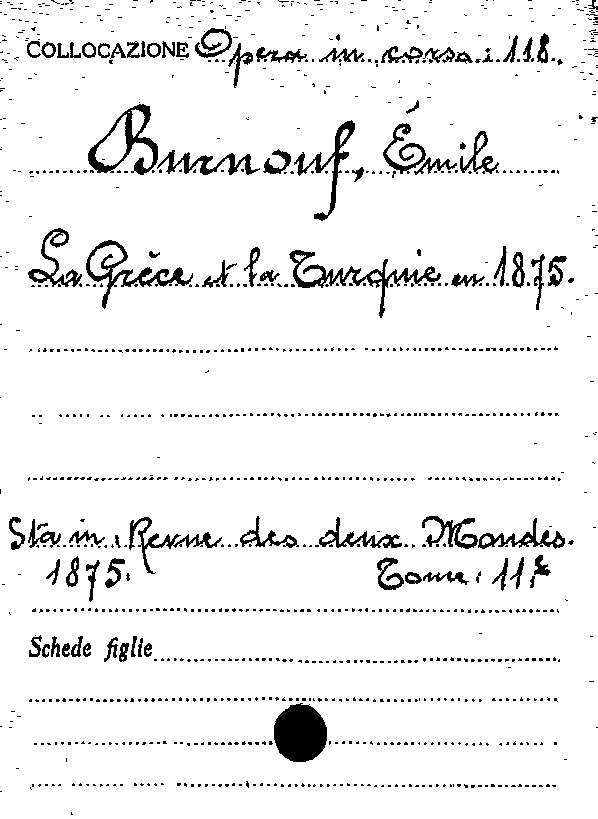 COLLOCAZIONE Opera in corso: 118.
Burnouf, Émile
La Grèce et la Turquie en 1875.
Sta in: Revue des deux Mondes.
1875. Tome: 11.e
Schede figlie